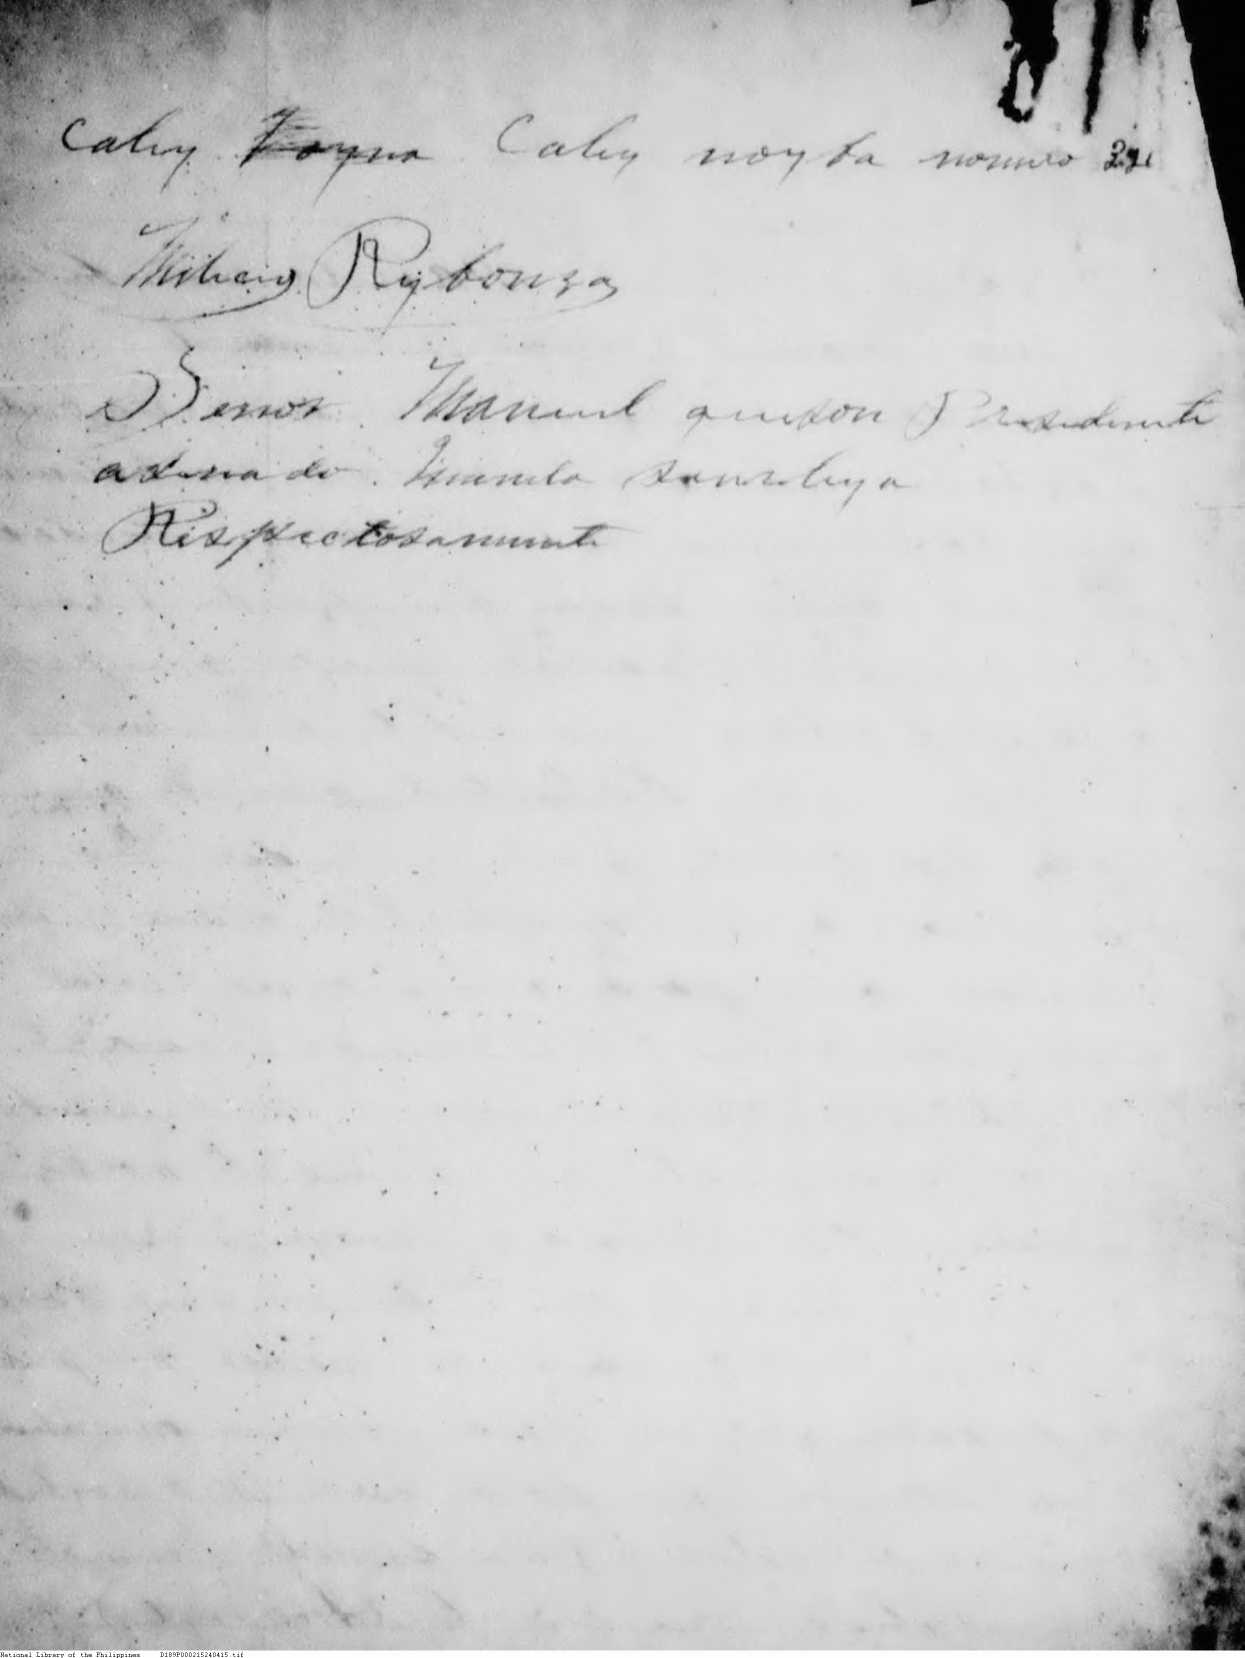 Caley Caley noyba nomiro 221
Milicio Rybonza
Senor Manuel quison Presidinte
adsnado. Manila
Rispectosaminte
National Library of the Philippines D189P000215240415.tif